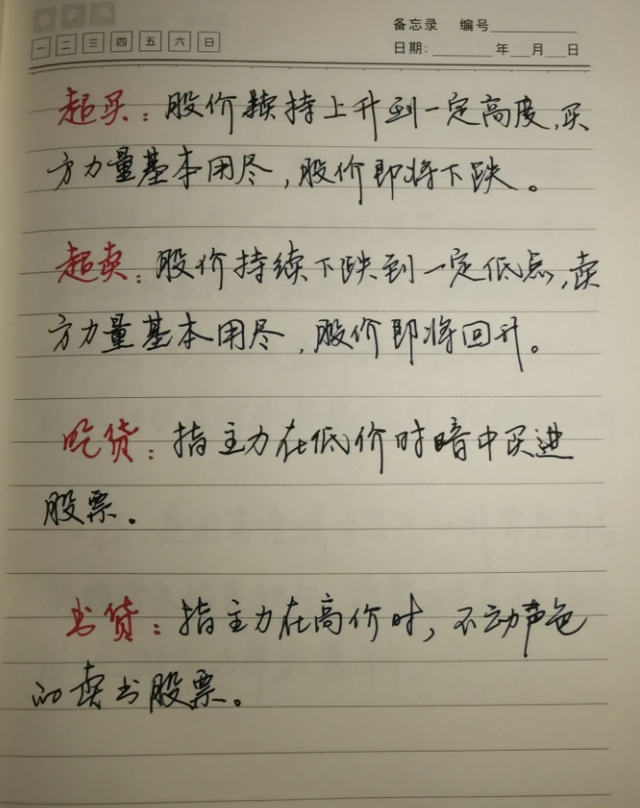 备忘录 编号
一 二 三 四 五 六 日
日期: 年 月 日
超买：股价持续上升到一定高度，买
方力量基本用尽，股价即将下跌。
超卖：股价持续下跌到一定低点，卖
方力量基本用尽，股价即将回升。
吃货：指主力在低价时暗中买进
股票。
出货：指主力在高价时，不动声色
的卖出股票。